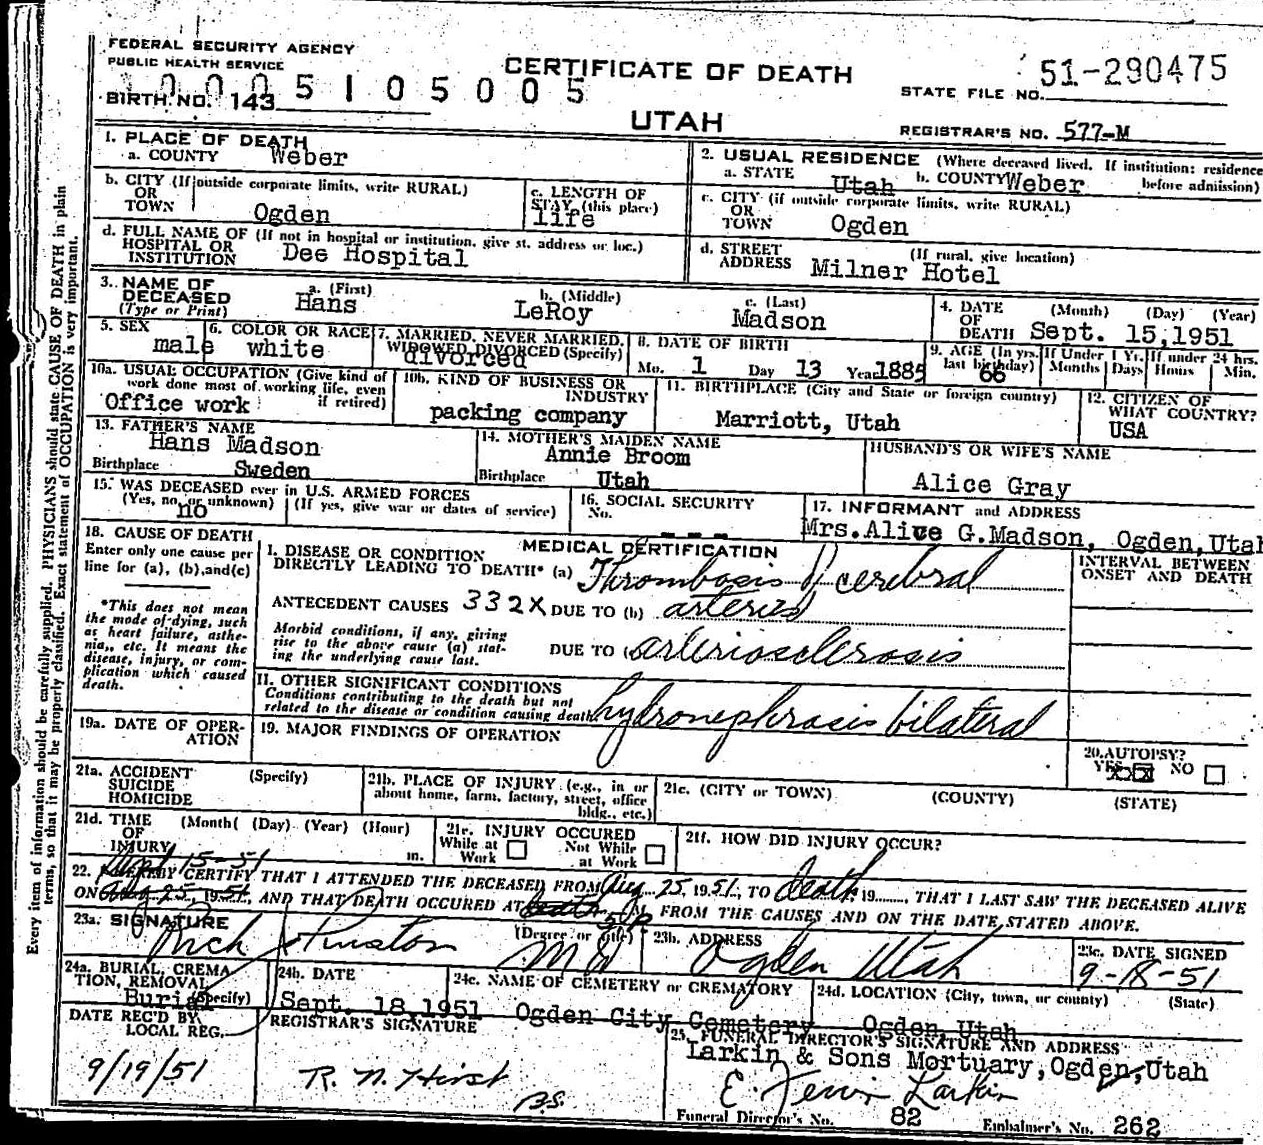 FEDERAL SECURITY AGENCY
PUBLIC HEALTH SERVICE
CERTIFICATE OF DEATH
STATE FILE NO. 51-290475
0005105005
BIRTH NO. 143
UTAH
REGISTRAR'S NO. 577-M
1. PLACE OF DEATH
a. COUNTY Weber
2. USUAL RESIDENCE (Where deceased lived. If institution: residence before admission)
a. STATE Utah b. COUNTY Weber
b. CITY (If outside corporate limits, write RURAL)
OR
TOWN Ogden
c. LENGTH OF
STAY (this place)
life
c. CITY (if outside corporate limits, write RURAL)
OR
TOWN Ogden
d. FULL NAME OF (If not in hospital or institution, give st. address or loc.)
HOSPITAL OR
INSTITUTION Dee Hospital
d. STREET (If rural, give location)
ADDRESS Milner Hotel
3. NAME OF
DECEASED
(Type or Print)
a. (First) Hans
b. (Middle) LeRoy
c. (Last) Madson
4. DATE (Month) (Day) (Year)
OF
DEATH Sept. 15,1951
5. SEX
male
6. COLOR OR RACE
white
7. MARRIED, NEVER MARRIED,
WIDOWED DIVORCED (Specify)
divorced
8. DATE OF BIRTH
Mo. 1 Day 13 Year 1885
9. AGE (In yrs. last birthday)
66
If Under 1 Yr.
Months Days
If under 24 hrs.
Hours Min.
10a. USUAL OCCUPATION (Give kind of
work done most of working life, even
if retired)
Office work
10b. KIND OF BUSINESS OR
INDUSTRY
packing company
11. BIRTHPLACE (City and State or foreign country)
Marriott, Utah
12. CITIZEN OF
WHAT COUNTRY?
USA
13. FATHER'S NAME
Hans Madson
Birthplace Sweden
14. MOTHER'S MAIDEN NAME
Annie Broom
Birthplace Utah
HUSBAND'S OR WIFE'S NAME
Alice Gray
15. WAS DECEASED ever in U.S. ARMED FORCES
(Yes, no, or unknown) (If yes, give war or dates of service)
no
16. SOCIAL SECURITY
No. ---
17. INFORMANT and ADDRESS
Mrs.Alice G.Madson, Ogden,Utah
18. CAUSE OF DEATH
Enter only one cause per
line for (a), (b),and(c)
*This does not mean
the mode of dying, such
as heart failure, asthe-
nia,, etc. It means the
disease, injury, or com-
plication which caused
death.
MEDICAL CERTIFICATION
I. DISEASE OR CONDITION
DIRECTLY LEADING TO DEATH* (a) Thrombosis of cerebral
ANTECEDENT CAUSES 332X DUE TO (b) arteries
Morbid conditions, if any, giving
rise to the above cause (a) stat-
ing the underlying cause last.
DUE TO (arteriosclerosis
INTERVAL BETWEEN
ONSET AND DEATH
II. OTHER SIGNIFICANT CONDITIONS
Conditions contributing to the death but not
related to the disease or condition causing death
hydronephrosis bilateral
19a. DATE OF OPER-
ATION
19. MAJOR FINDINGS OF OPERATION
20. AUTOPSY?
YES NO
21a. ACCIDENT (Specify)
SUICIDE
HOMICIDE
21b. PLACE OF INJURY (e.g., in or
about home, farm, factory, street, office
bldg., etc.)
21c. (CITY or TOWN) (COUNTY) (STATE)
21d. TIME (Month( (Day) (Year) (Hour)
OF
INJURY m.
21e. INJURY OCCURED
While at Not While
Work at Work
21f. HOW DID INJURY OCCUR?
Sept 15-51
22. I HEREBY CERTIFY THAT I ATTENDED THE DECEASED FROM Aug 25, 1951, TO death, 19......., THAT I LAST SAW THE DECEASED ALIVE
ON Aug 25, 1951, AND THAT DEATH OCCURED AT death 5:00 P M, FROM THE CAUSES AND ON THE DATE STATED ABOVE.
23a. SIGNATURE (Degree or title)
Rich Johnston MD
23b. ADDRESS
Ogden Utah
23c. DATE SIGNED
9-18-51
24a. BURIAL, CREMA
TION, REMOVAL
(Specify)
Burial
24b. DATE
Sept. 18,1951
24c. NAME OF CEMETERY or CREMATORY
Ogden City Cemetery
24d. LOCATION (City, town, or county) (State)
Ogden, Utah
DATE REC'D BY
LOCAL REG.
9/19/51
REGISTRAR'S SIGNATURE
R. N. Hirst
B.S.
25. FUNERAL DIRECTOR'S SIGNATURE AND ADDRESS
Larkin & Sons Mortuary,Ogden,Utah
Larkin
Funeral Director's No. 82 Embalmer's No. 262
Every item of information should be carefully supplied. PHYSICIANS should state CAUSE OF DEATH in plain
terms, so that it may be properly classified. Exact statement of OCCUPATION is very important.